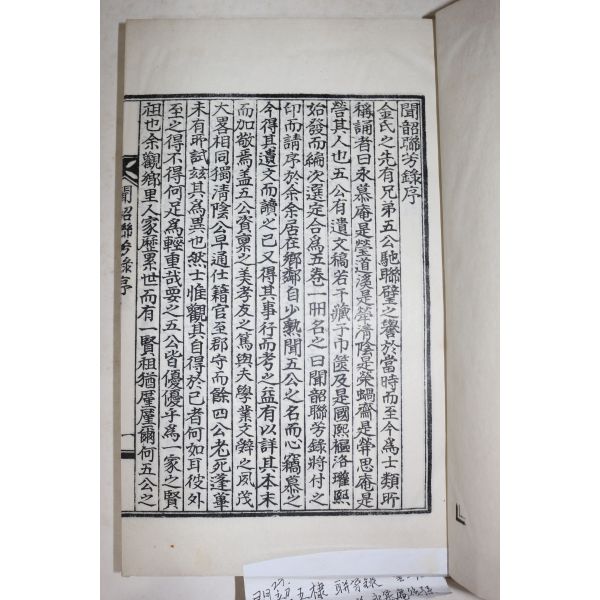 聞韶聯芳錄序
金氏之先有兄弟五公馳聯璧之譽於當時而至今爲士類所
稱誦者曰永慕庵是瑩道溪是榮淸陰是榮蝸齋是㷀思庵是
營其人也五公有遺文稿若干藏于巾篋及是國熙樞洛瓘熙
始發而編次選定合爲五卷一冊名之曰聞韶聯芳錄將付之
印而請序於余余居在鄕鄰自少熱聞五公之名而心竊慕之
今得其遺文而讀之已又得其事行而考之益有以詳其本末
而加敬焉盖五公資稟之美孝友之篤與夫學業文辭之夙茂
大畧相同獨淸陰公早通仕籍官至郡守而餘四公老死蓬蓽
未有所試玆其爲異也然士惟觀其自得於己者何如耳彼外
至之得不得何足爲輕重哉要之五公皆優優乎爲一家之賢
祖也余觀鄕里人家歷累世而有一賢祖猶屢屢爾何五公之
聞韶聯芳錄序
一